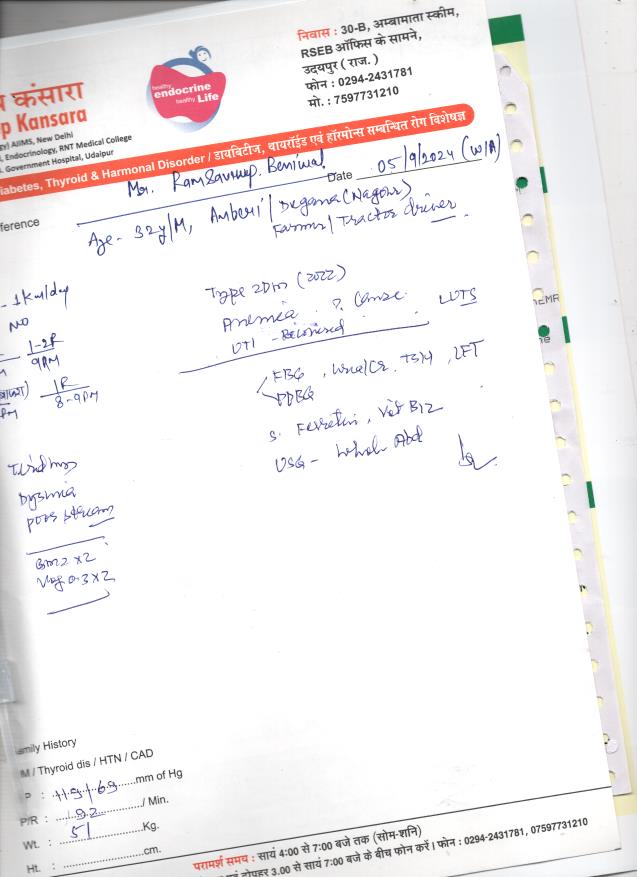 निवास : 30-B, अम्बामाता स्कीम,
RSEB ऑफिस के सामने,
उदयपुर ( राज. )
फोन : 0294-2431781
मो. : 7597731210
कंसारा
p Kansara
healthy
endocrine
healthy Life
AIIMS, New Delhi
Endocrinology, RNT Medical College
Government Hospital, Udaipur
iabetes, Thyroid & Harmonal Disorder / डायबिटीज, थायरॉईड एवं हॉरमोन्स सम्बन्धित रोग विशेषज्ञ
ference
Mr. RamSavrup. Beniwal
Date 05/9/2024 (W/A)
Age - 32y/M, Amberi / Degana (Nagour)
Farmer / Tractor driver
- 1km/day
NO
1-2R
9PM
1R
8-9PM
Type 2DM (2022)
Anemia ? Cause
UTI - Recurrent
LUTS
FBG, Urea/Cr. TSH, LFT
PPBG
S. Ferretin, Vit B12
USG - Whole Abd
Dysuria
poor stream
x2
0.3 x2
amily History
M / Thyroid dis / HTN / CAD
P : 119/69 mm of Hg
P/R : 92 / Min.
Wt. : 51 Kg.
Ht. : cm.
परामर्श समय : सायं 4:00 से 7:00 बजे तक (सोम-शनि)
एवं दोपहर 3.00 से सायं 7:00 बजे के बीच फोन करें। फोन : 0294-2431781, 07597731210